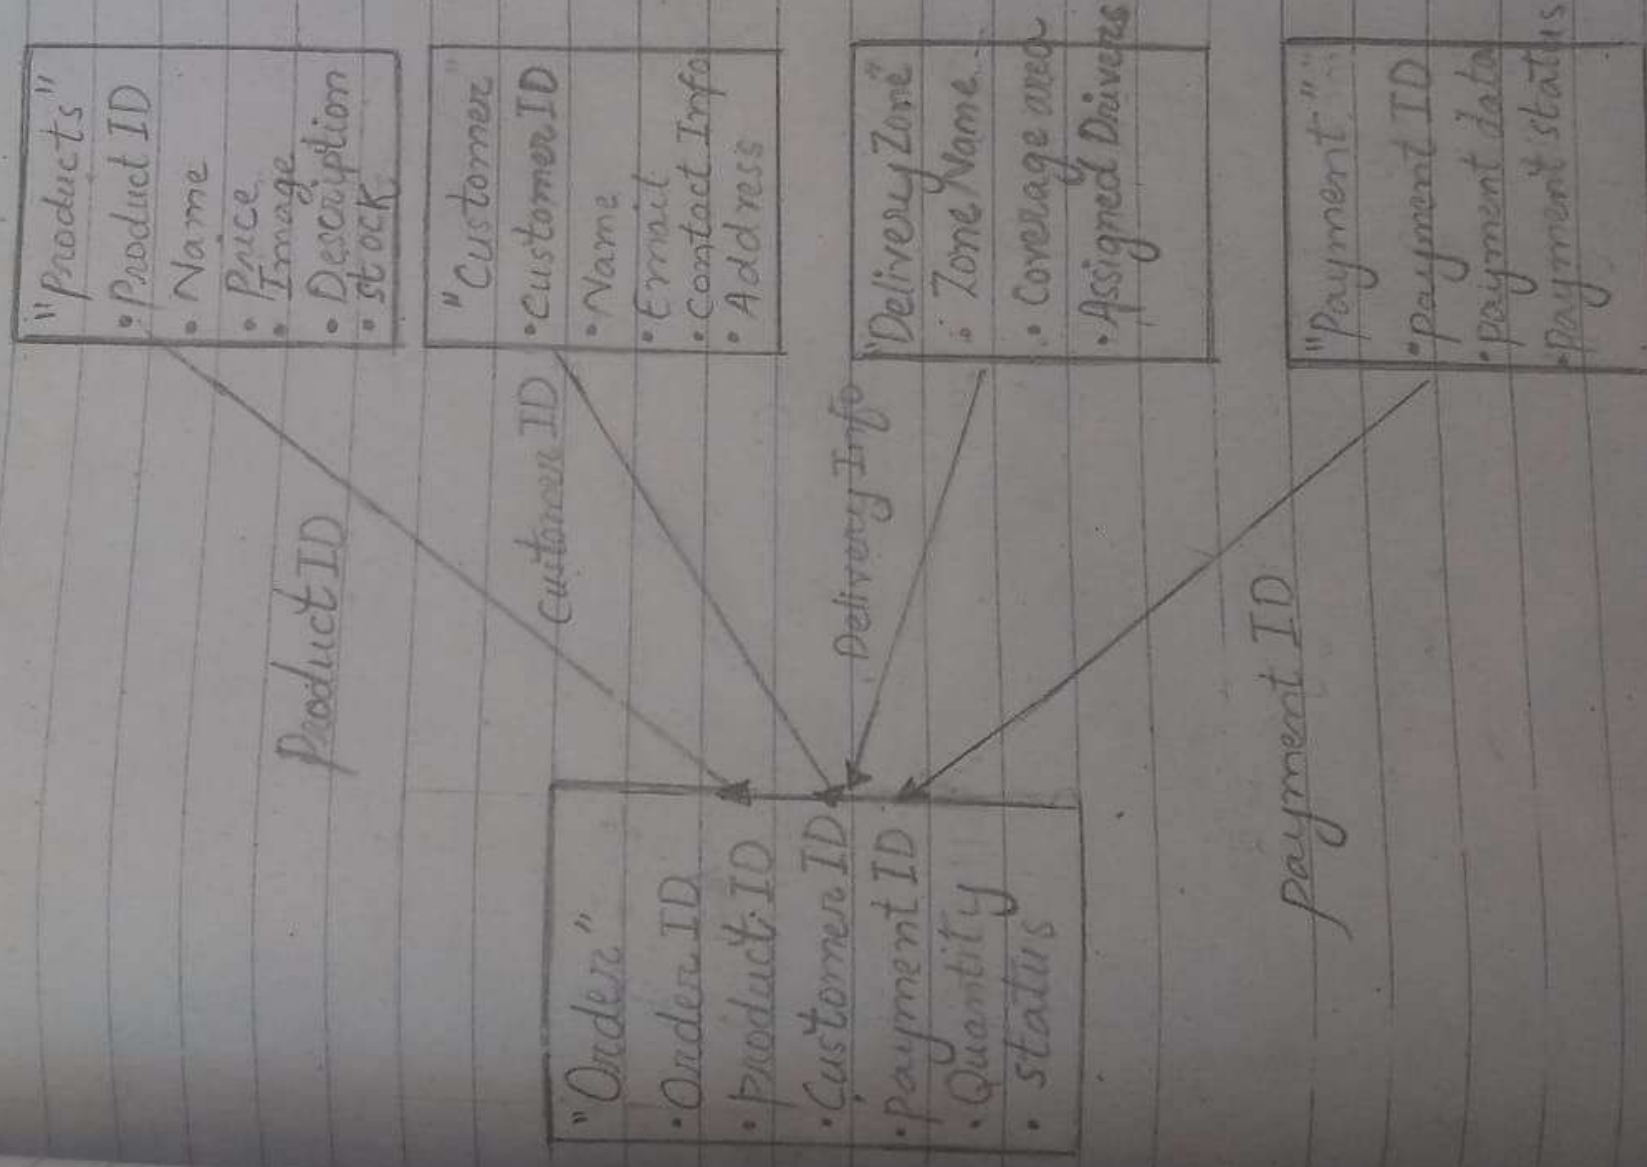 "Products"
• Product ID
• Name
• Price
• Image
• Description
• stock
"Customer"
• Customer ID
• Name
• Email
• Contact Info
• Address
"Delivery Zone"
• Zone Name
• Coverage area
• Assigned Drivers
"Payment"
• Payment ID
• Payment data
• Payment status
Product ID
Customer ID
Delivery Info
Payment ID
"Order"
• Order ID
• Product ID
• Customer ID
• Payment ID
• Quantity
• status